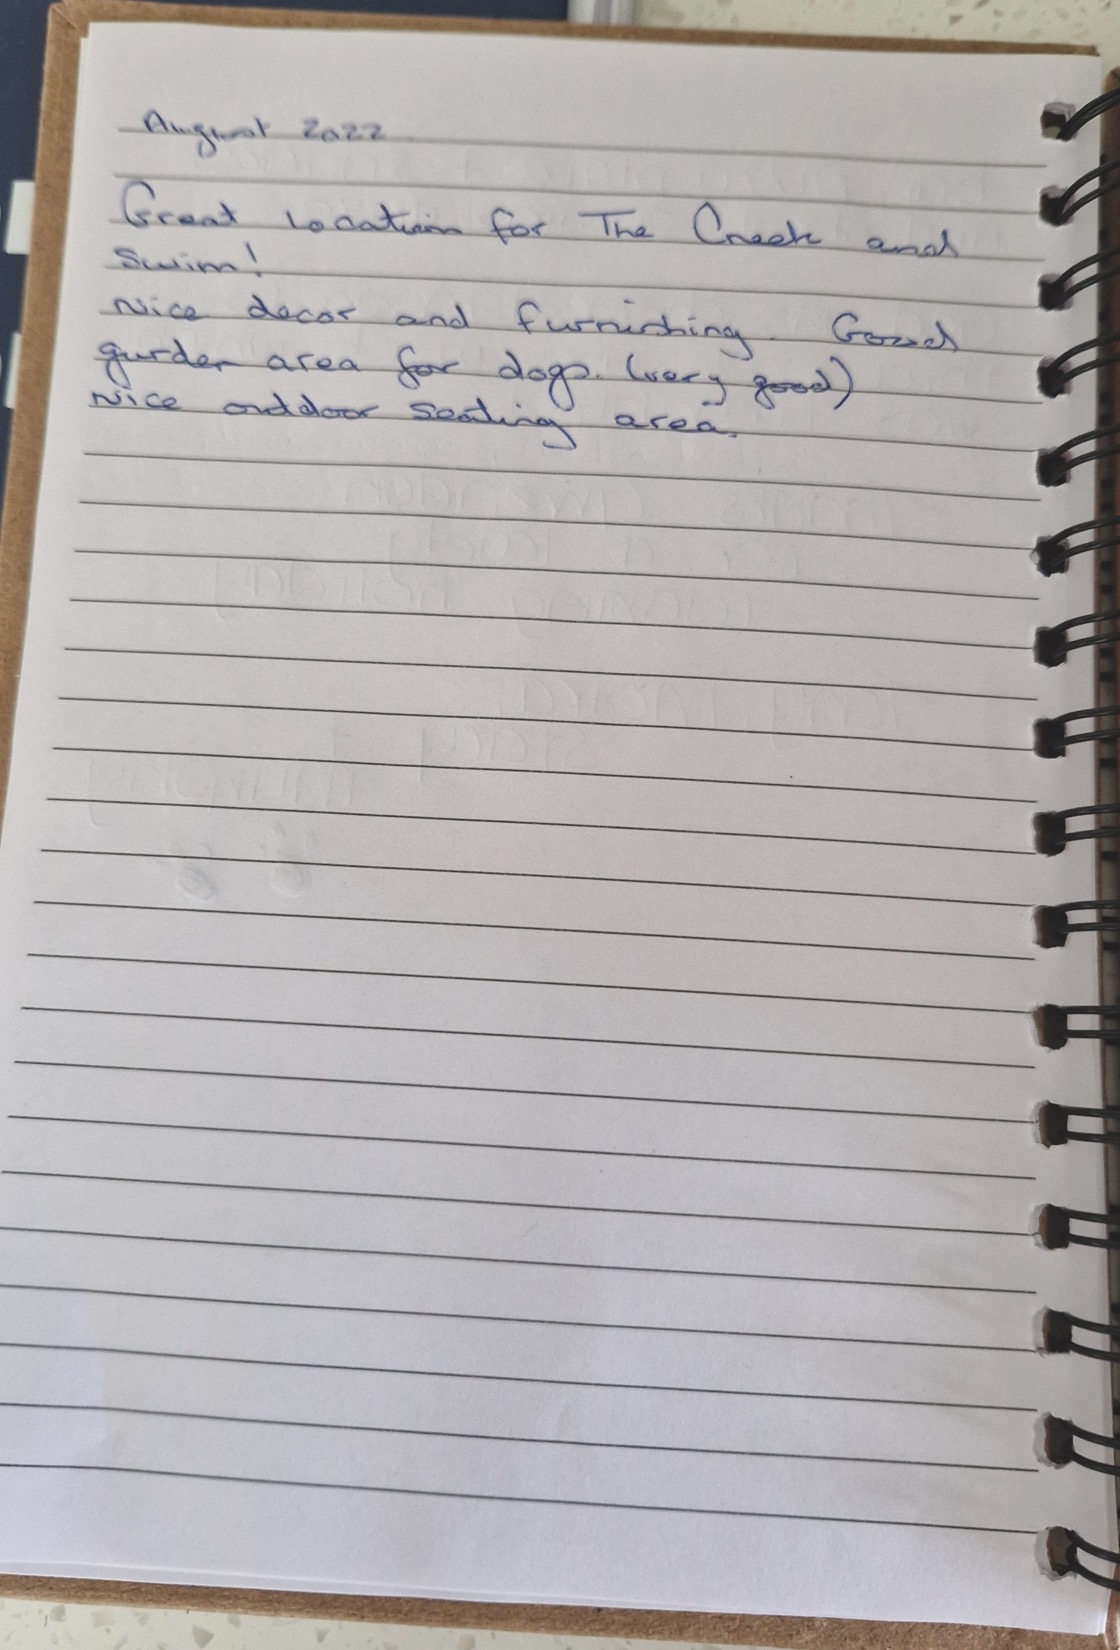 August 2022
Great location for The Creek and
Swim!
Nice decor and furnishing. Good
garden area for dogs. (very good)
Nice outdoor seating area.